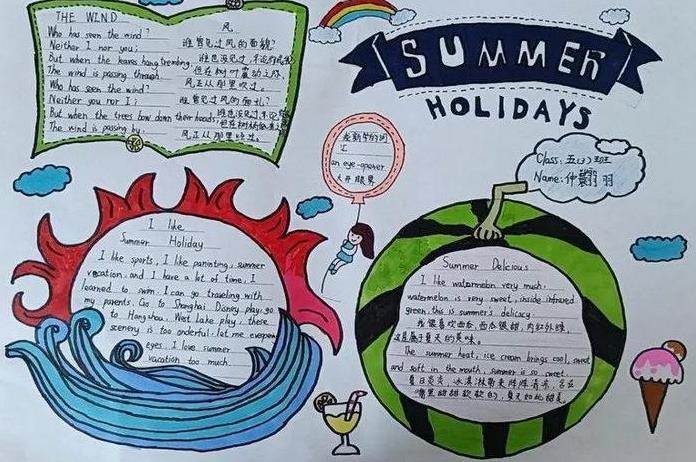 THE WIND
Who has seen the wind?
Neither I nor you;
But when the leaves hang trembling,
The wind is passing through.
Who has seen the wind?
Neither you nor I;
But when the trees bow down their heads,
The wind is passing by.
风
谁曾见过风的面貌?
谁也没见过,不论你或我
但在树叶震动之际
风正从那里吹过。
谁曾见过风的面孔?
谁也没见过,不论
风正从那里经过。
SUMMER
HOLIDAYS
Class: 五(3)班
Name:
an eye-opener
大开眼界
I like
Summer Holiday
I like sports, I like paninting, summer
vacation, and I have a lot of time, I
learned to swim. I can go traveling with
my parents. Go to Shanghai Disney play. go
to Hangzhou, West Lake play, these
scenery is too onderful. let me
eyes. I love summer
vacation too much.
Summer Delicious
I like watermelon very much.
watermelon is very sweet, inside
green. this is summer's delicacy.
我很喜欢西瓜,西瓜很甜,内红外绿,
这是属于夏天的美味。
The summer heat, ice cream brings cool, sweet
and soft in the mouth, summer is so sweet.
夏日炎炎,冰淇淋带来阵阵清凉,含在
嘴里甜甜软软的,夏天如此甜美。